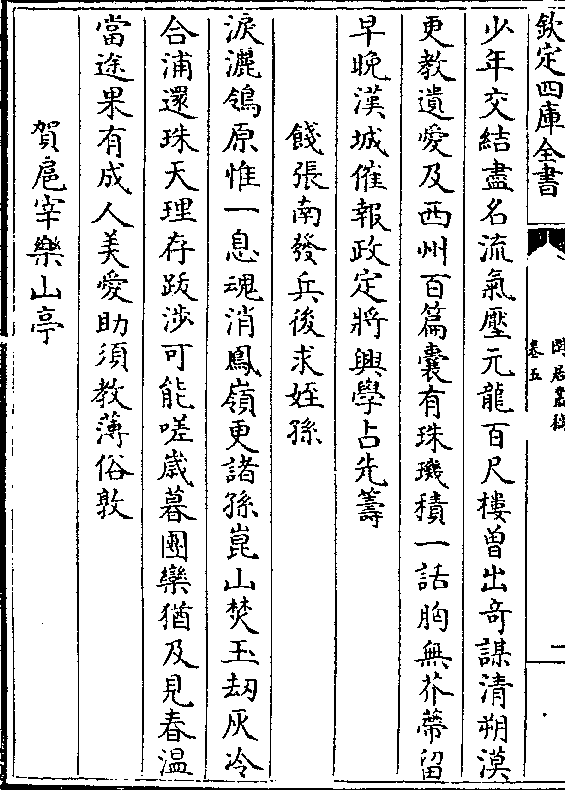 欽定四庫全書
卷五
二
少年交結盡名流氣壓元龍百尺樓曽出竒謀清朔漠
更教遺愛及西州百篇囊有珠璣積一話胸無芥蔕留
早晩漢城催報政定將興學占先籌
餞張南發兵後求姪孫
淚灑鴒原惟一息魂消鳳嶺更諸孫崑山焚玉刧灰冷
合浦還珠天理存跋涉可能嗟歲暮團欒猶及見春温
當途果有成人美愛助須教薄俗敦
賀扈宰樂山亭